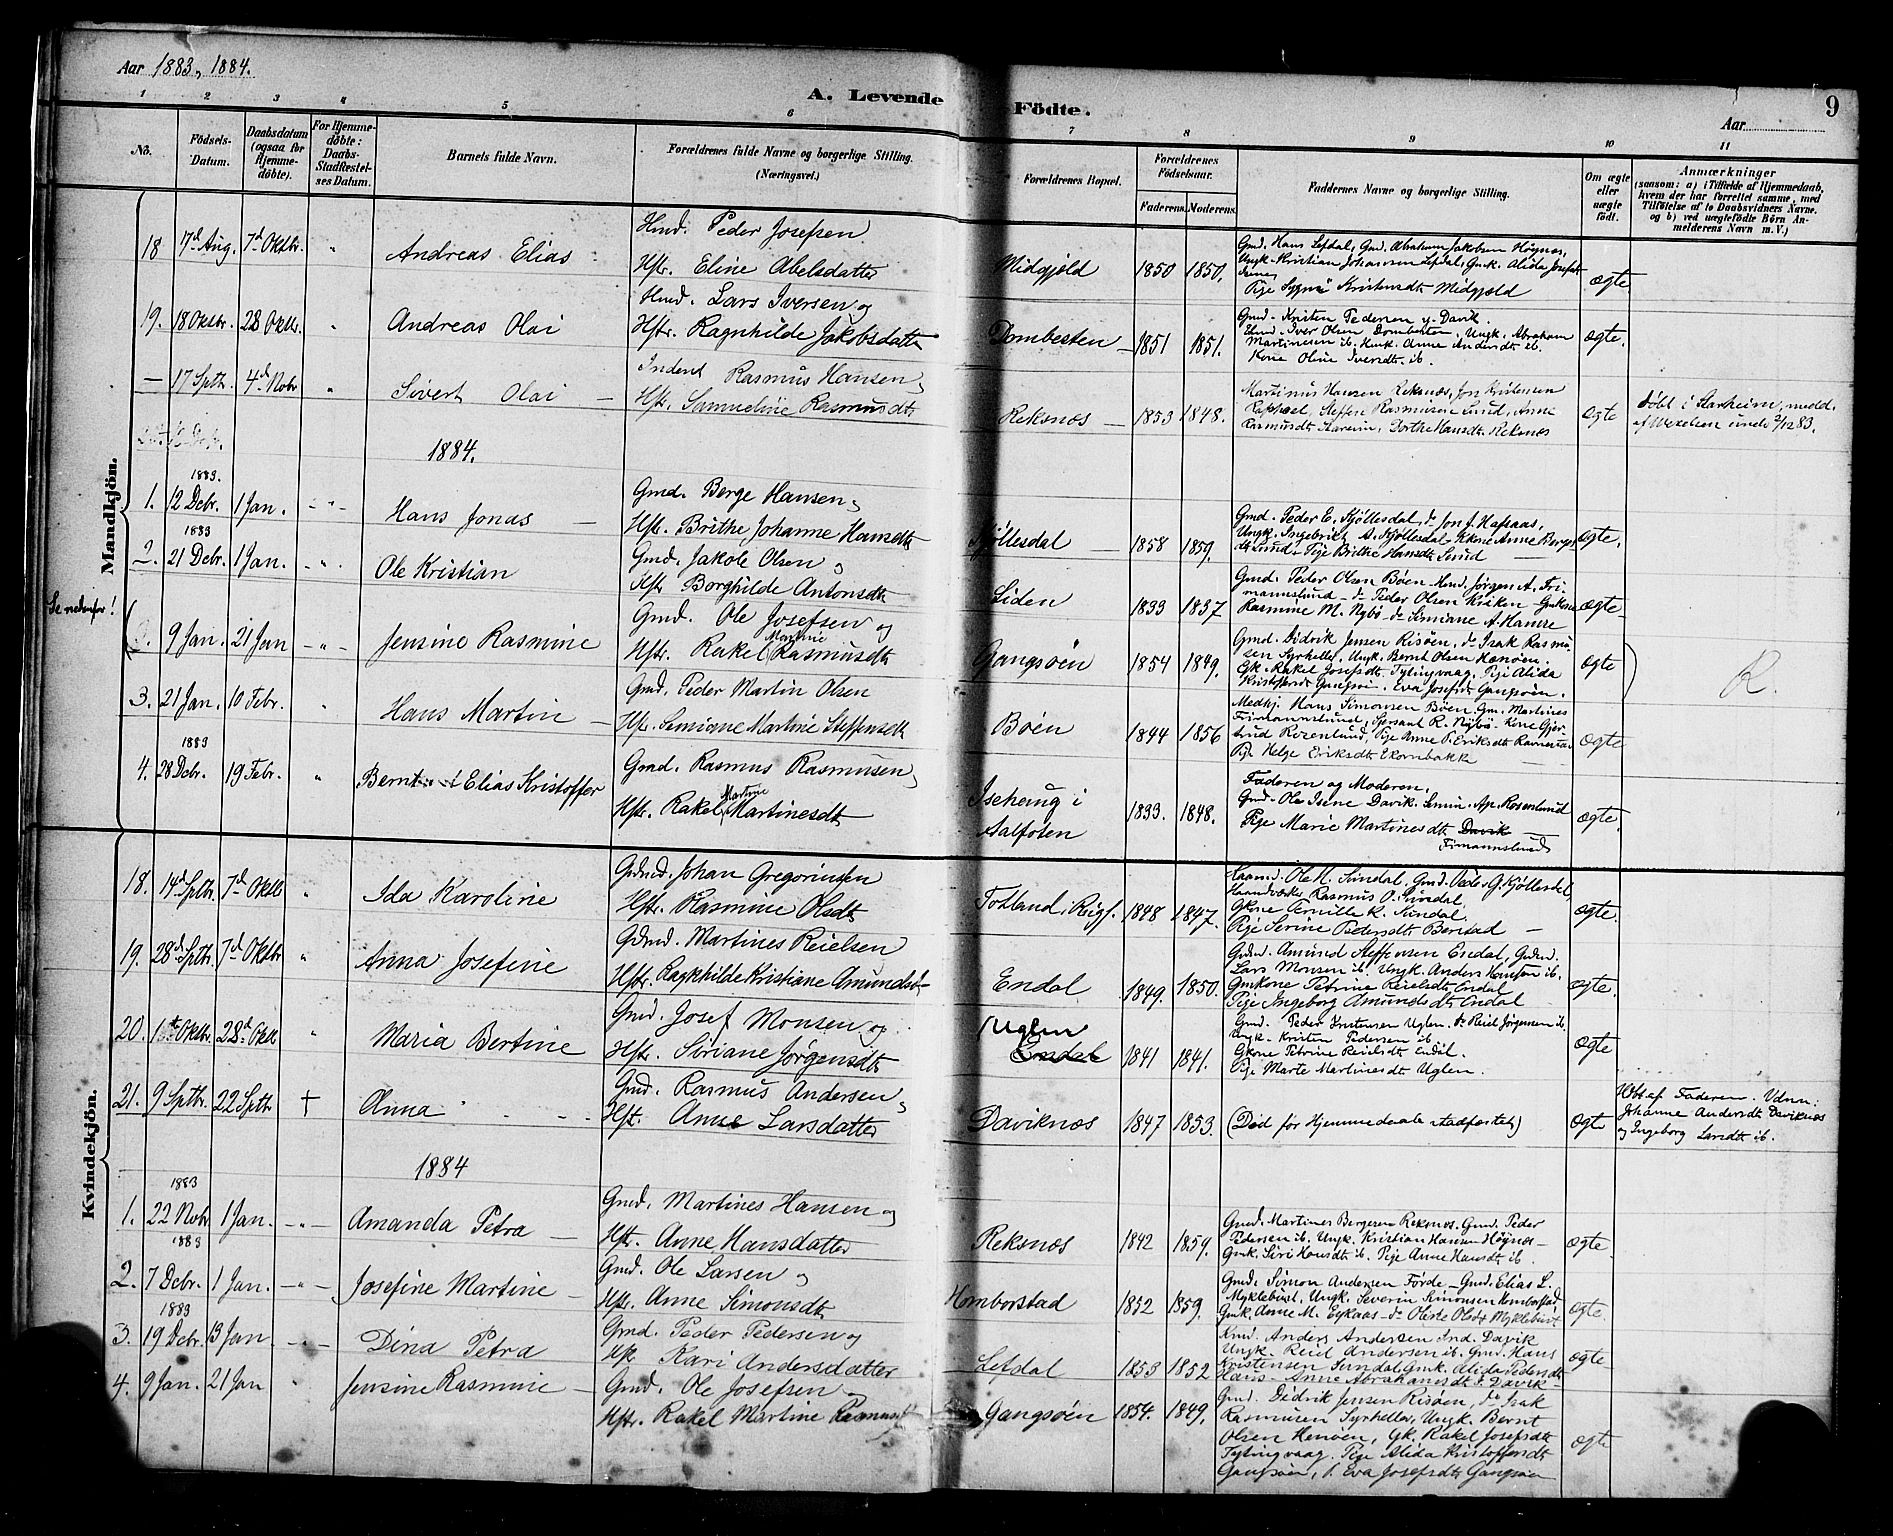 Aar 1883, 1884.
A. Levende Födte.
9
Aar
1 2 3 4 5 6 7 8 9 10 11
No.
Födsels-Datum.
Daabsdatum (ogsaa for Hjemme-döbte).
For Hjemme-döbte: Daabs-Stadfæstel-ses Datum.
Barnets fulde Navn.
Forældrenes fulde Navne og borgerlige Stilling. (Næringsvei.)
Forældrenes Bopæl.
Forældrenes Födselsaar.
Faderens. Moderens.
Faddernes Navne og borgerlige Stilling.
Om ægte eller uægte födt.
Anmærkninger
(saasom: a) i Tilfælde af Hjemmedaab, hvem der har forrettet samme, med Tilföielse af to Daabsvidners Navne. og b) ved uægtefödte Börn An-melderens Navn m. V.)
Mandkjön.
18 17d Aug. 7d Oktbr. " Andreas Elias Hmd. Peder Josefsen Hstr. Eline Abelsdatter Midgjøld 1850 1850. Gmd. Hans Lefdal, Gmd. Abraham Jakobsen Høynæs, Ungk. Kristian Johannesen Lefdal, Gmk. Alida Pige Kristensdt Midgjøld ægte
19. 18 Oktbr. 28 Oktbr. " Andreas Olai Hmd. Lars Iversen og Hstr. Ragnhilde Jakobsdatter Dombesten 1851 1851. Gmd. Kristen Pedersen y. Davik. Iver Olsen Dombesten, Ungk. Abraham Martinesen ib. Anne Andersdt ib. Kone Oline Iversdt ib. ægte.
— 17 Sptbr. 4d Nobr " Sivert Olai Inderst Rasmus Hansen, Hstr. Samueline Rasmusdtr Reksnæs 1853 1848. Martinus Hansen Reksnæs, Jon Kristensen Steffen Rasmusen Lund, Anne Rasmusdt Starheim, Dorthe Hansdt Reksnæs ægte Døbt i Starheim, medd. af Wexelsen
1884.
1. 1883. 12 Debr. 1 Jan. - " - Hans Jonas Gmd. Berge Hansen, Hstr. Brithe Johanne Hansdtr Kjøllesdal 1858 1859. Gmd. Peder E. Kjøllesdal, do Jon J. Hafsaas, Ungk. Ingebrikt A. Kjøllesdal Kone Anne Bergesdt Lund. Pige Brithe Hansdt Lund ægte.
2. 1883 21 Debr. 1 Jan. - " . Ole Kristian Gmd. Jakob Olsen og Hstr Borghilde Antonsdtr Liden 1833 1837 Gmd. Peder Olsen Bøen Hmd. Jørgen A. Fri-mannslund do Peder Olsen Kriken Gmkone Rasmine M. Nybø do Simiane A. Hamre ægte
Se nedenfor!
3. 9 Jan. 21 Jan - " - Jensine Rasmine Gmd. Ole Josefsen og Hstr. Rakel Martine Rasmusdtr Gangsøen 1854 1849. Gmd. Didrik Jensen Risøen, do Isak Rasmu-sen Syrheller, Ungk. Bernt Olsen Henøen. Gk. Rakel Josefsdt Tytingvaag, Pige Alida Kristoffersdt Gangsøi. Eva Josefsdt Gangsøen. ægte R.
3. 21 Jan. 10 Febr. " Hans Martin Gmd. Peder Martin Olsen Hstr. Simiane Martine Steffensdtr Bøen 1844 1856 Medhj. Hans Simonsen Bøen. Gm. Martines Frimannslund, Sersant R. Nybø. Kone Gjer-trud Rosenlund, Pige Anne P. Eriksdt Pi. Helge Eriksdt Ekornbakke ægte
4. 1883 28 Debr. 19 Febr. " Bernt Elias Kristoffer Gmd. Rasmus Rasmusen, Hstr. Rakel Martine Martinesdtr Isehaug i Aalfoten 1833. 1848. Faderen og Moderen. Gmd. Ole Isene Davik. Semin. Ap. Rosenlund Pige Marie Martinesdt Davik Frimannslund ægte.
Kvindekjön.
18. 14d Sptbr. 7d Oktb " Ida Karoline Grdmd. Johan Gregoriusen Hstr. Rasmine Olsdtr Totland i Rugs. 1848 1847. Ole M. Sundal, Gmd. Peder G. Kjøllesdal, Haandværker Rasmus O. Sundal. Gkone Pernille K. Sundal. Pige Serine Pedersdt Berstad ægte.
19. 28d Sptbr. 7d Oktbr " Anna Josefine Grdmd. Martines Reielsen Hstr. Ragnhilde Kristiane Amundsdtr Endal 1849. 1850. Grdmd. Amund Steffensen Endal, Grdmd. Lars Monsen ib. Ungk. Anders Hansen ib. Gmkone Petrine Reielsdt Endal Pige Ingeborg Amundsdt Endal ægte.
20. 1ste Oktbr. 28d Oktb " Maria Bertine Gmd. Josef Monsen og Hstr. Siriane Jørgensdtr Uglen Endal 1841 1841. Gmd. Peder Kristensen Uglen. do Reiel Jørgensen ib. Ungk. Kristen Pedersen ib. Gkone Petrine Reielsdt Endal. Pige Marte Martinesdt Uglen. ægte
21. 9 Sptbr. 22 Sptb † Anna Gmd. Rasmus Andersen, Hstr. Anne Larsdatter Daviknæs 1847 1853. (Død før Hjemmedaabs stadfæstet) ægte af Faderen. Vidner: Johanne Andersdt Daviknæs og Ingeborg Larsdt ib.
1884
1. 1883 22 Nobr 1 Jan. - " - Amanda Petra Gmd. Martines Hansen og Hstr. Anne Hansdatter Reksnæs 1842 1859. Gmd. Martines Bergesen Reksnæs. Gmd. Peder Pedersen ib. Ungk. Kristian Hansen Høynæs Gmk. Siri Hansdt ib. Pige Anne Hansdt ib. ægte.
2. 1883 7 Debr. 1 Jan. - " - Josefine Martine Gmd. Ole Larsen og Hstr. Anne Simonsdtr Homborstad 1852 1859. Gmd. Simon Andersen Førde Gmd. Elias L. Myklebust, Ungk. Severin Simonsen Homborstad Gmk. Anne M. Eykaas do Oleste Olsdt Myklebust ægte.
3. 1883 19 Debr. 13 Jan - " - Dina Petra Gmd. Peder Pedersen og Hstr Kari Andersdatter Lefdal 1853 1852 Anders Andersen Ind. Davik Ungk. Reiel Andersen ib. Gmd. Hans Kristensen Sundal Gmk. Alida Pedersdt Anne Abrahamsdt Davik ægte
4. 9 Jan. 21 Jan " Jensine Rasmine Gmd. Ole Josefsen og Hstr. Rakel Martine Rasmusdtr Gangsøen 1854. 1849. Gmd. Didrik Jensen Risøen, do Isak Rasmusen Syrheller, Ungk. Bernt Olsen Henøen, Gk. Rakel Josefsdt Tytingvaag. Pige Alida Kristoffersdt Gangsøen, P. Eva Josefsdt Gangsøen ægte